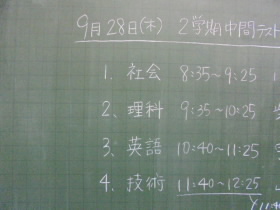 9月28日(木) 2学期中間テスト
1. 社会 8:35~9:25
2. 理科 9:35~10:25
3. 英語 10:40~11:25
4. 技術 11:40~12:25